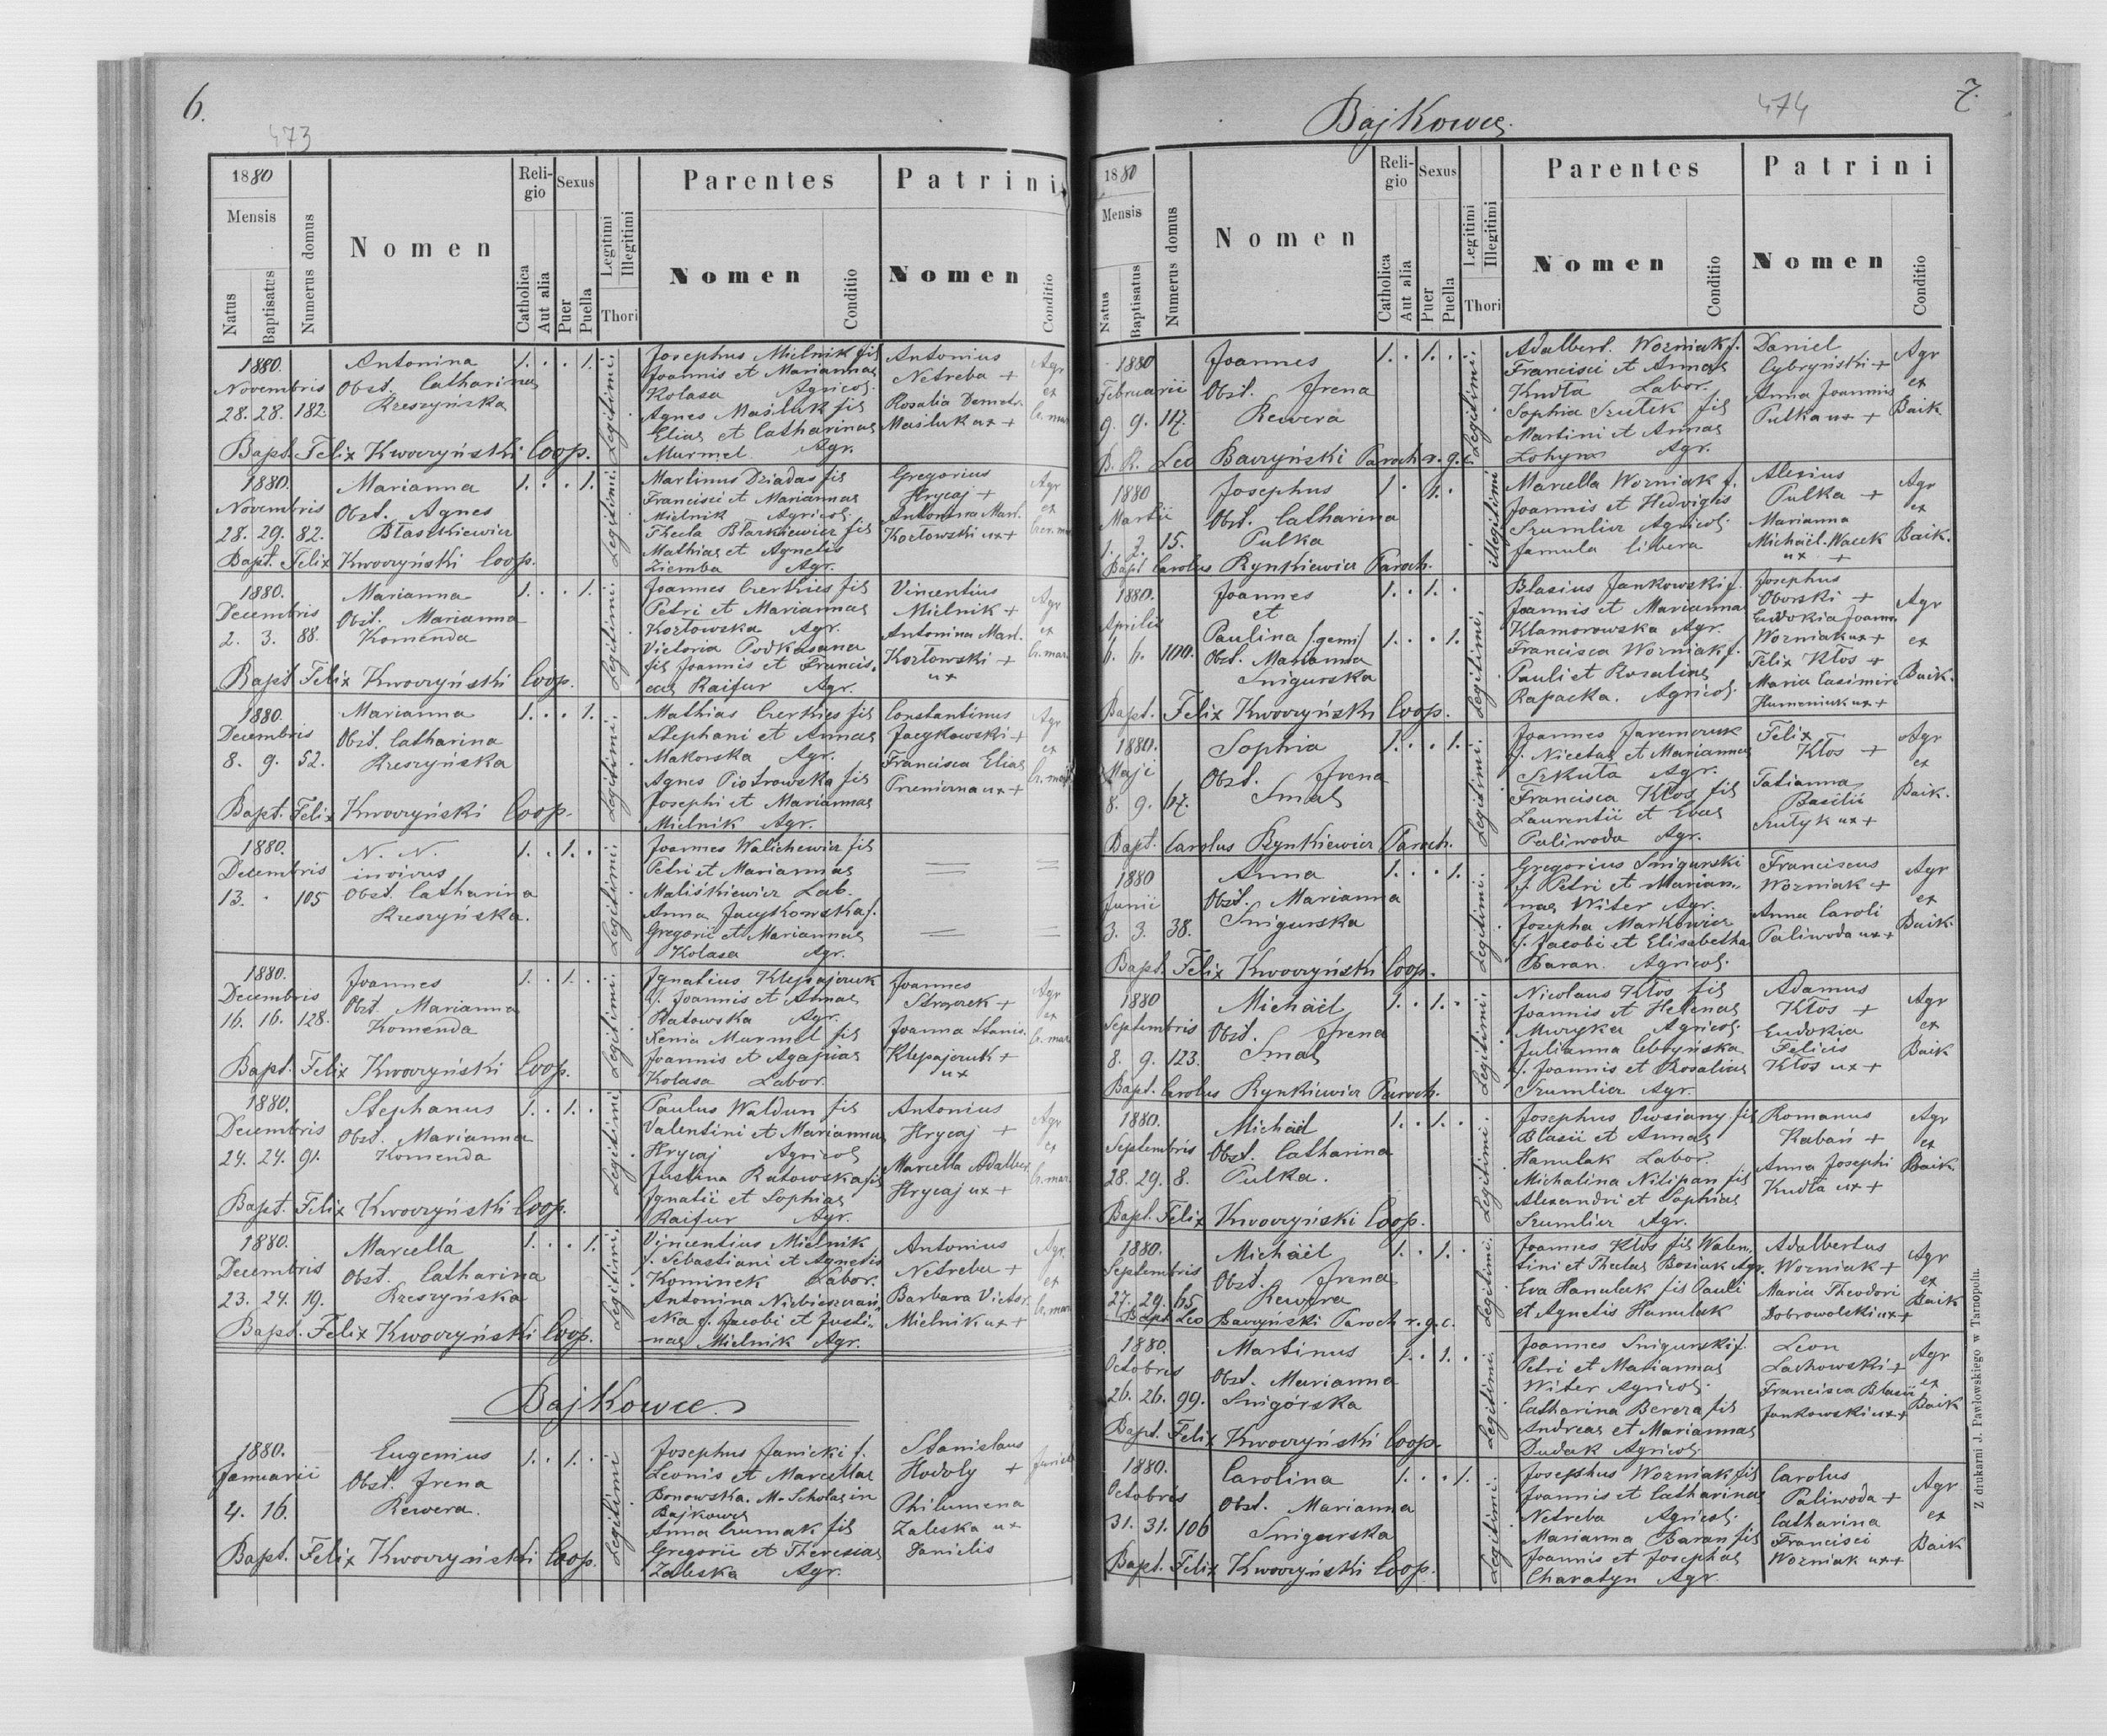 6.
473
1880
Mensis
Natus
Baptisatus
Numerus domus
Nomen
Religio
Catholica
Aut alia
Sexus
Puer
Puella
Legitimi
Illegitimi
Thori
Parentes
Nomen
Conditio
Patrini
Nomen
Conditio
1880.
Novembris
28. 28. 182
Antonina
Obst. Catharina
Rzeszyńska
1. . . 1.
Legitimi.
Josephus Mielnik fil
Joannis et Mariannae
Kolasa Agricol.
Agnes Maśluk fil
Eliae et Catharinae
Murmel. Agr.
Antonius
Netreba +
Rosalia Demetr.
Maśluk ux +
Agr
ex
Bapt. Felix Kwovzyński Coop.
1880.
Novembris
28. 29. 82.
Marianna
Obst. Agnes
Błaszkiewicz
1. . . 1.
Legitimi.
Martinus Dziadas fil
Francisci et Mariannae
Mielnik Agricol.
Thecla Błaszkiewicz fil
Mathiae et Agnetis
Ziemba Agr.
Gregorius
Hrycaj +
Antonina Mart.
Kozłowski ux +
Agr
ex
Bapt. Felix Kwovzyński Coop.
1880.
Decembris
2. 3. 88.
Marianna
Obst. Marianna
Komenda
1. . . 1.
Legitimi.
Joannes Czerkies fil
Petri et Mariannae
Kozłowska Agr.
Victoria Podkasana
fil Joannis et Francis-
cae Raifur Agr.
Vincentius
Mielnik +
Antonina Mart.
Kozłowski +
ux
Agr
ex
Bapt Felix Kwovzyński Coop.
1880.
Decembris
8. 9. 52.
Marianna
Obst. Catharina
Rzeszyńska
1. . . 1.
Legitimi.
Mathias Czerkies fil
Stephani et Annae
Makorska Agr.
Agnes Piotrowska fil
Josephi et Mariannae
Mielnik Agr.
Constantinus
Jacykowski +
Francisca Eliae
ux +
Agr
ex
Bapt. Felix Kwovzyński Coop.
1880.
Decembris
13. . 105
N. N.
invivus
Obst Catharina
Rzeszyńska.
1. . 1. .
Legitimi.
Joannes Walichewicz fil
Petri et Mariannae
Maliśkiewicz Lab.
Anna Jacykowska f.
Gregorii et Mariannae
Kolasa Agr.
1880.
Decembris
16. 16. 128.
Joannes
Obst. Marianna
Komenda
1. . 1. .
Legitimi.
Ignatius Klepajczuk
f. Joannis et Annae
Ratowska Agr.
Xenia Murmel fil
Joannis et Agapiae
Kolasa Labor.
Joannes
+
Joanna Stanis.
Klepajczuk +
ux
Agr
ex
Bapt. Felix Kwovzyński Coop.
1880.
Decembris
24. 24. 91.
Stephanus
Obst. Marianna
Komenda
1. . 1. .
Legitimi
Paulus Waldun fil
Valentini et Mariannae
Hrycaj Agricol
Justina Ratowska fil
Ignatii et Sophiae
Raifur Agr.
Antonius
Hrycaj +
Marcella Adalber.
Hrycaj ux +
Agr
ex
Bapt. Felix Kwovzyński Coop.
1880.
Decembris
23. 24. 19.
Marcella
Obst. Catharina
Rzeszyńska
1. . . 1.
Legitimi.
Vincentius Mielnik
f. Sebastiani et Agnetis
Kominek Labor.
Antonina
ska f. Jacobi et Justi-
nae Mielnik Agr.
Antonius
Netreba +
Barbara Victor.
Mielnik ux +
Agr.
ex
Bapt. Felix Kwovzyński Coop.
Bajkowce
1880.
Januarii
4. 16.
Eugenius
Obst. Irena
Rewera.
1. . 1. .
Legitimi
Josephus Janicki f.
Leonis et Marcellae
Bonowska. M. Schola in
Bajkowce
Anna Czumak fil
Gregorii et Theresiae
Zaleska Agr.
Stanislaus
Hodoly +
Philumena
Zaleska ux
Danielis
Bapt. Felix Kwovzyński Coop.
Bajkowce.
474
7.
1880
Mensis
Natus
Baptisatus
Numerus domus
Nomen
Religio
Catholica
Aut alia
Sexus
Puer
Puella
Legitimi
Illegitimi
Thori
Parentes
Nomen
Conditio
Patrini
Nomen
Conditio
1880
Februarii
9. 9. 117.
Joannes
Obst. Irena
Rewera
1. . 1. .
Legitimi.
Adalbert. Wozniak f.
Francisci et Annae
Kudła Labor.
Sophia Szutek fil
Martini et Annae
Lohyn Agr.
Daniel
Cybryński +
Anna Joannis
Pulka ux +
Agr
ex
Baik
B. R. Leo Baczyński Paroch r. g. c.
1880
Martii
1. 2. 15.
Josephus
Obst. Catharina
Pulka
1. . 1. .
illegitimi
Marcella Wozniak f.
Joannis et Hedvigis
Szumlicz Agricol.
famula libera
Alexius
Pulka +
Marianna
Michaël. Wacek
ux +
Agr
ex
Baik.
Bapt Carolus Rynkiewicz Paroch.
1880.
Aprilis
6. 6. 100.
Joannes
et
Paulina /: gemi/
Obst. Marianna
Snigurska
1. . 1. .
1. . . 1.
Legitimi.
Blasius Jankowski f.
Joannis et Marianna
Klamorowska Agr.
Francisca Wozniak f.
Pauli et Rosaliae
Rapacka. Agricol.
Josephus
Oborski +
Eudokia Joann.
Wozniak ux +
Felix Kłos +
Maria Casimiri
Humeniuk ux +
Agr
ex
Baik.
Bapt. Felix Kwovzyński Coop.
1880.
Maji
8. 9. 67.
Sophia
Obst. Irena
Smal
1. . . 1.
Legitimi.
Joannes Jaremczuk
f. Nicetae et Mariannae
Szkuta Agr.
Francisca Kłos fil
Laurentii et Evae
Paliwoda Agr.
Felix
Kłos +
Tatianna
Basilii
Szutyk ux +
Agr
ex
Baik.
Bapt. Carolus Rynkiewicz Paroch.
1880
Junii
3. 3. 38.
Anna
Obst. Marianna
Snigurska
1. . . 1.
Legitimi.
Gregorius Snigurski
f. Petri et Marian-
nae Witer Agr.
Josepha Markowicz
f. Jacobi et Elisabetha
Baran. Agricol.
Franciscus
Wozniak +
Anna Caroli
Paliwoda ux +
Agr
ex
Baik.
Bapt. Felix Kwovzyński Coop.
1880
Septembris
8. 9. 123.
Michaël
Obst. Irena
Smal
1. . 1. .
Legitimi.
Nicolaus Kłos fil
Joannis et Helenae
Muzyka Agricol.
Julianna Cebryńska
f. Joannis et Rosaliae
Szumlicz Agr.
Adamus
Kłos +
Eudokia
Felicis
Kłos ux +
Agr
ex
Baik
Bapt. Carolus Rynkiewicz Paroch.
1880.
Septembris
28. 29. 8.
Michaël
Obst. Catharina
Pulka.
1. . 1. .
Legitimi.
Josephus Owsiany fil
Blasii et Annae
Hanulak Labor.
Michalina Nilipan fil
Alexandri et Sophiae
Szumlicz Agr.
Romanus
Kabań +
Anna Josephi
Kudła ux +
Agr
ex
Baik.
Bapt. Felix Kwovzyński Coop.
1880.
Septembris
27. 29. 65.
Michaël
Obst. Irena
Rewera
1. . 1. .
Legitimi.
Joannes Kłos fil Walen-
tini et Theclae Bosiuk Agr.
Eva Hanulak fil Pauli
et Agnetis Hanulak
Adalbertus
Wozniak +
Maria Theodori
Dobrowolski ux +
Agr
ex
Baik
Bapt Leo Baczyński Paroch r. g. c.
1880.
Octobris
26. 26. 99.
Martinus
Obst. Marianna
Snigórska
1. . 1. .
Legitimi.
Joannes Snigurski f.
Petri et Mariannae
Witer Agricol.
Catharina Bereza fil
Andreae et Mariannae
Dudak Agricol.
Leon
Lachowski +
Francisca Blasii
Jankowski ux +
Agr
ex
Baik
Bapt. Felix Kwovzyński Coop.
1880.
Octobris
31. 31. 106
Carolina
Obst. Marianna
Snigurska
1. . . 1.
Legitimi.
Josephus Wozniak fil
Joannis et Catharinae
Netreba Agricol.
Marianna Baran fil
Joannis et Josephae
Charatyn Agr.
Carolus
Paliwoda +
Catharina
Francisci
Wozniak ux +
Agr
ex
Baik
Bapt. Felix Kwovzyński Coop.
Z drukarni J. Pawłowskiego w Tarnopolu.